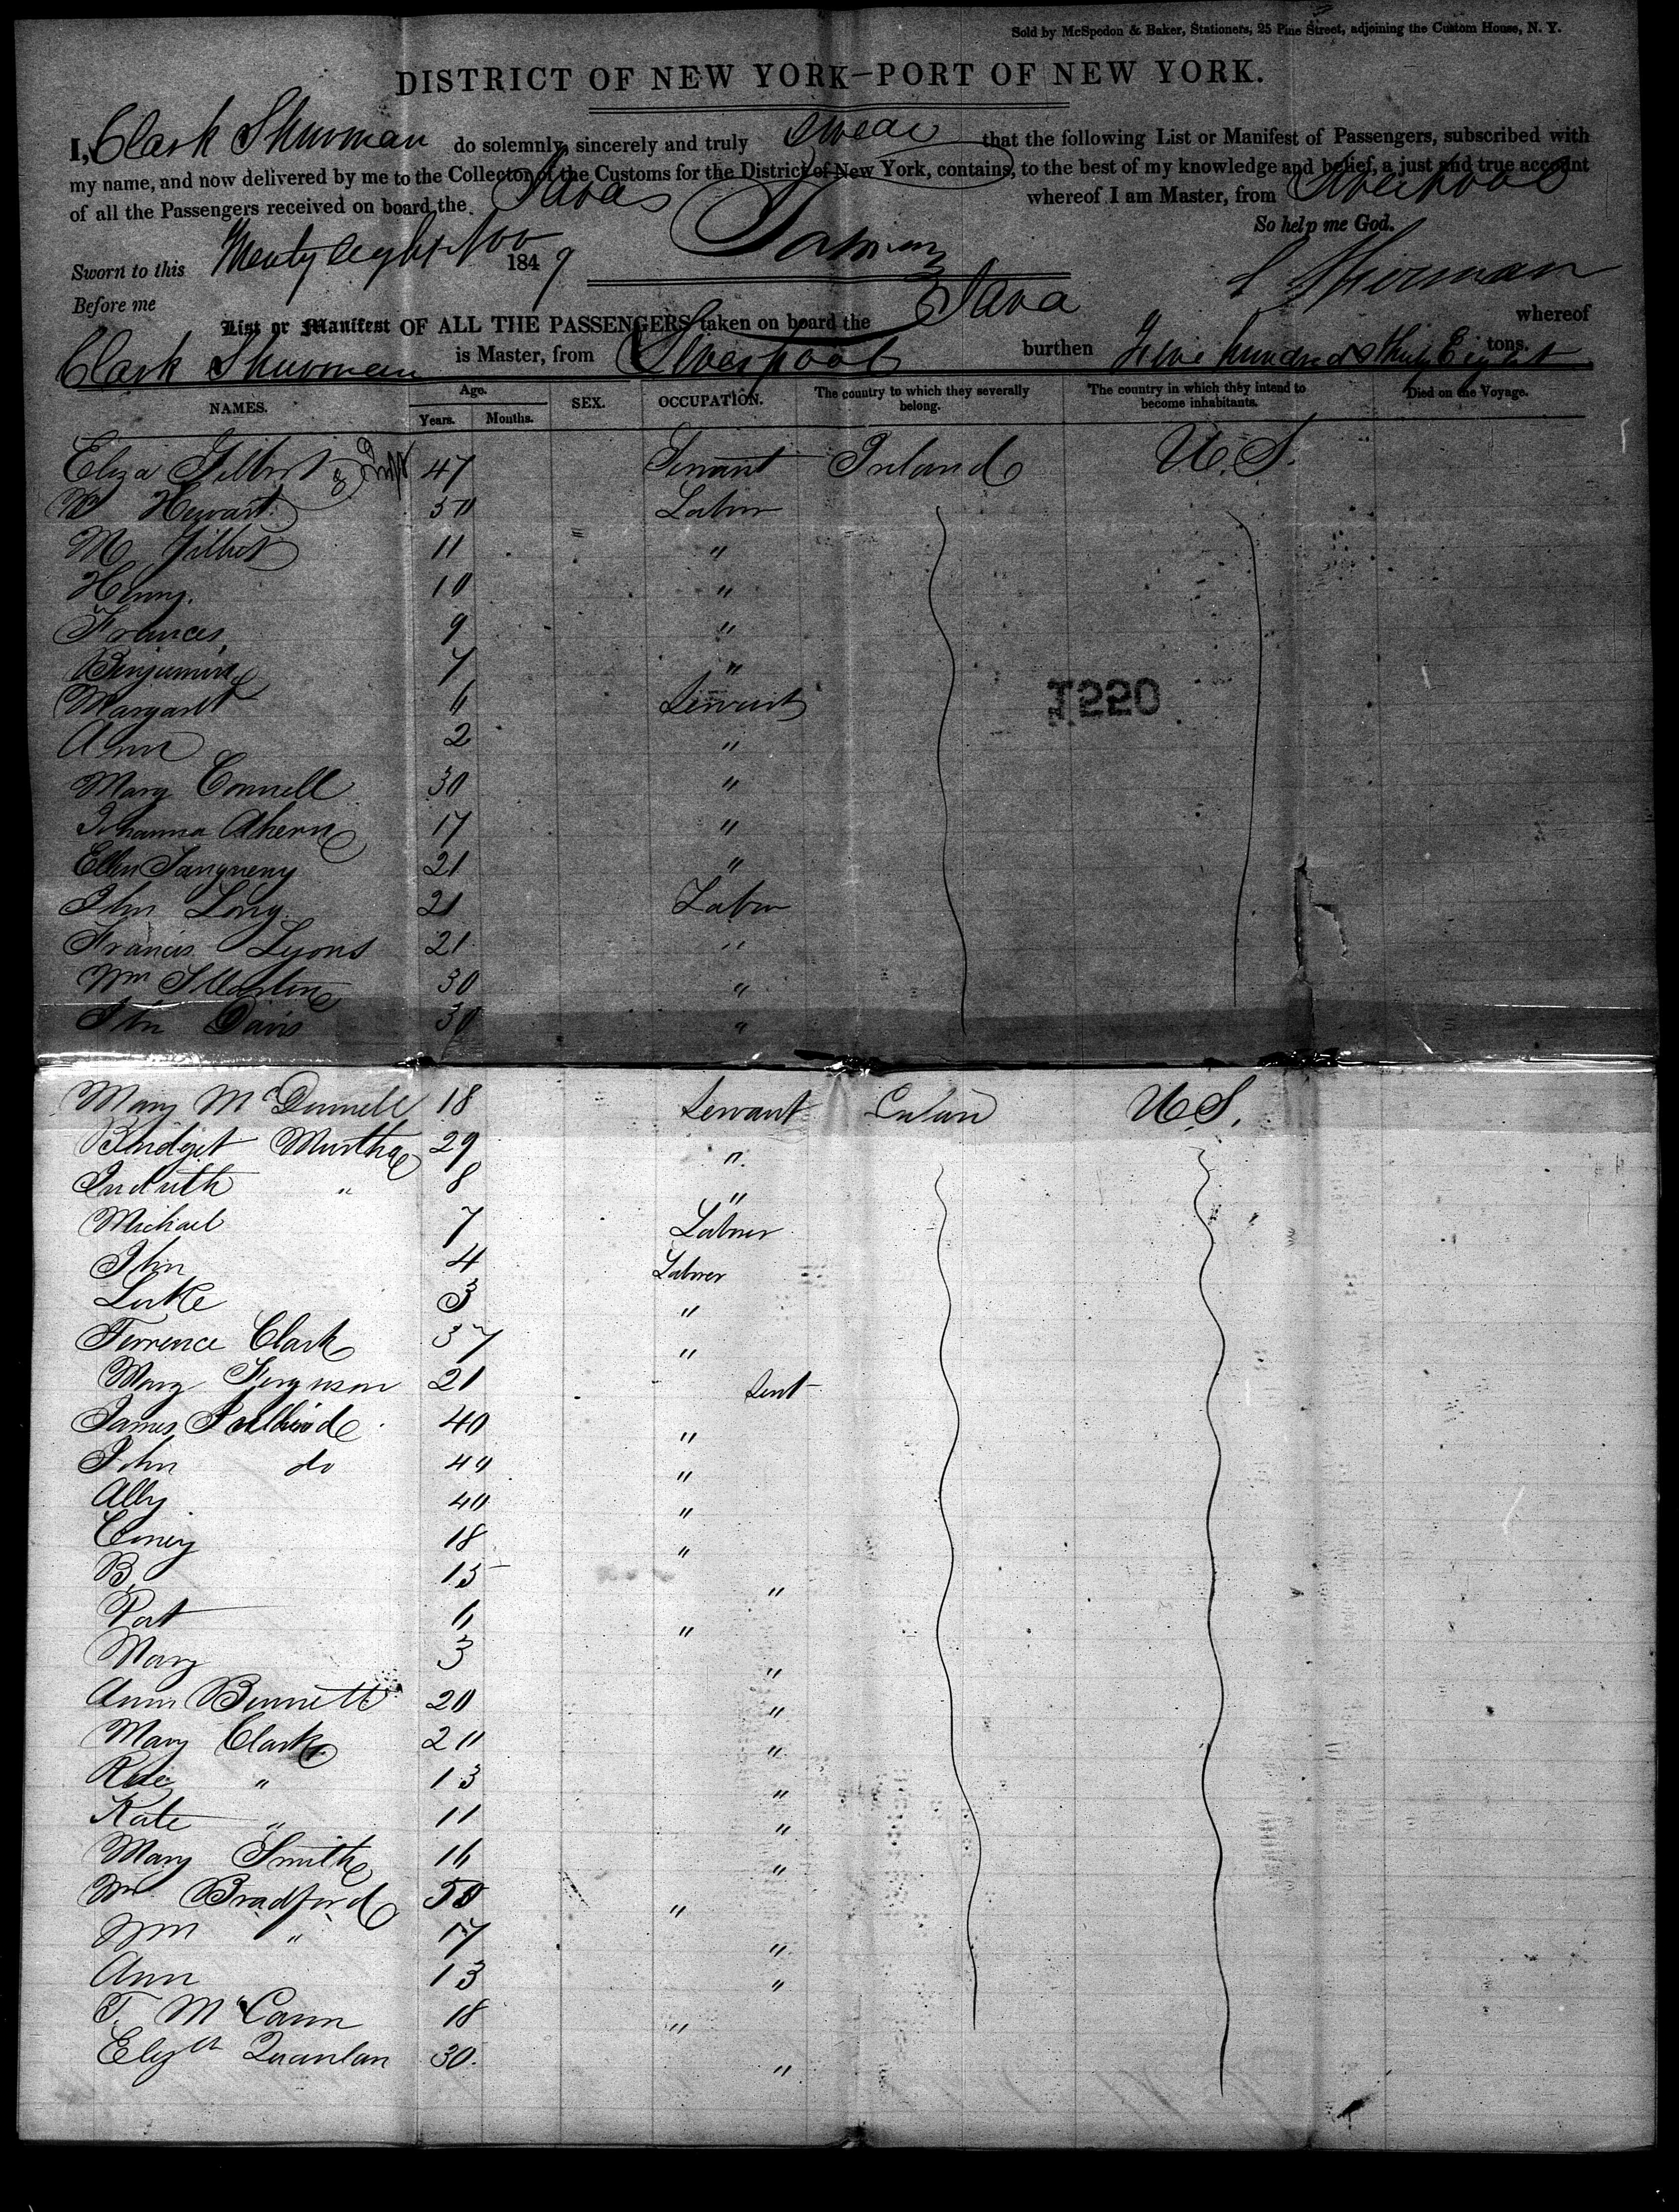 Sold by McSpedon & Baker, Stationers, 25 Pine Street, adjoining the Custom House, N. Y.
DISTRICT OF NEW YORK—PORT OF NEW YORK.
I, Clark Shurman do solemnly, sincerely and truly swear that the following List or Manifest of Passengers, subscribed with
my name, and now delivered by me to the Collector of the Customs for the District of New York, contains, to the best of my knowledge and belief, a just and true account
of all the Passengers received on board the Java whereof I am Master, from Liverpool
So help me God.
Sworn to this Twenty eight Nov 1849
Before me
List or Manifest OF ALL THE PASSENGERS taken on board the Java whereof
Clark Shurman is Master, from Liverpool burthen Five hundred & Thirty Eight tons.
NAMES. Age. Years. Months. SEX. OCCUPATION. The country to which they severally belong. The country in which they intend to become inhabitants. Died on the Voyage.
Eliza Gilbert 47 Servant Ireland U.S.
Hewart 50 Labor
M Gilbert 11 "
Henry. 10 "
Frances 9 "
Benjamin 7 "
Margaret 6 Servant
Ann 2 "
Mary Connell 30 "
Johanna Ahern 17 "
Ellen 21 "
John Long 21 Labor
Francis Lyons 21 "
Wm 30 "
John Davis 30 "
1220
Mary McDonnell 18 Servant U.S.
Bridget Murtha 29 "
" 8 "
Michael 7 Labour
John 4 Labrer
Luke 3 "
Terrence Clark 37 "
Mary Ferguson 21 Sert
James 40 "
John do 44 "
Ally 40 "
18 "
B 15 "
Pat 6 "
Mary 3 "
Ann Bennett 20 "
Mary Clark 20 "
" 13 "
Kate " 11 "
Mary Smith 16 "
Bradford 50 "
Wm " 17 "
Ann 13 "
T. McCann 18 "
Elizth Quanlan 30. "